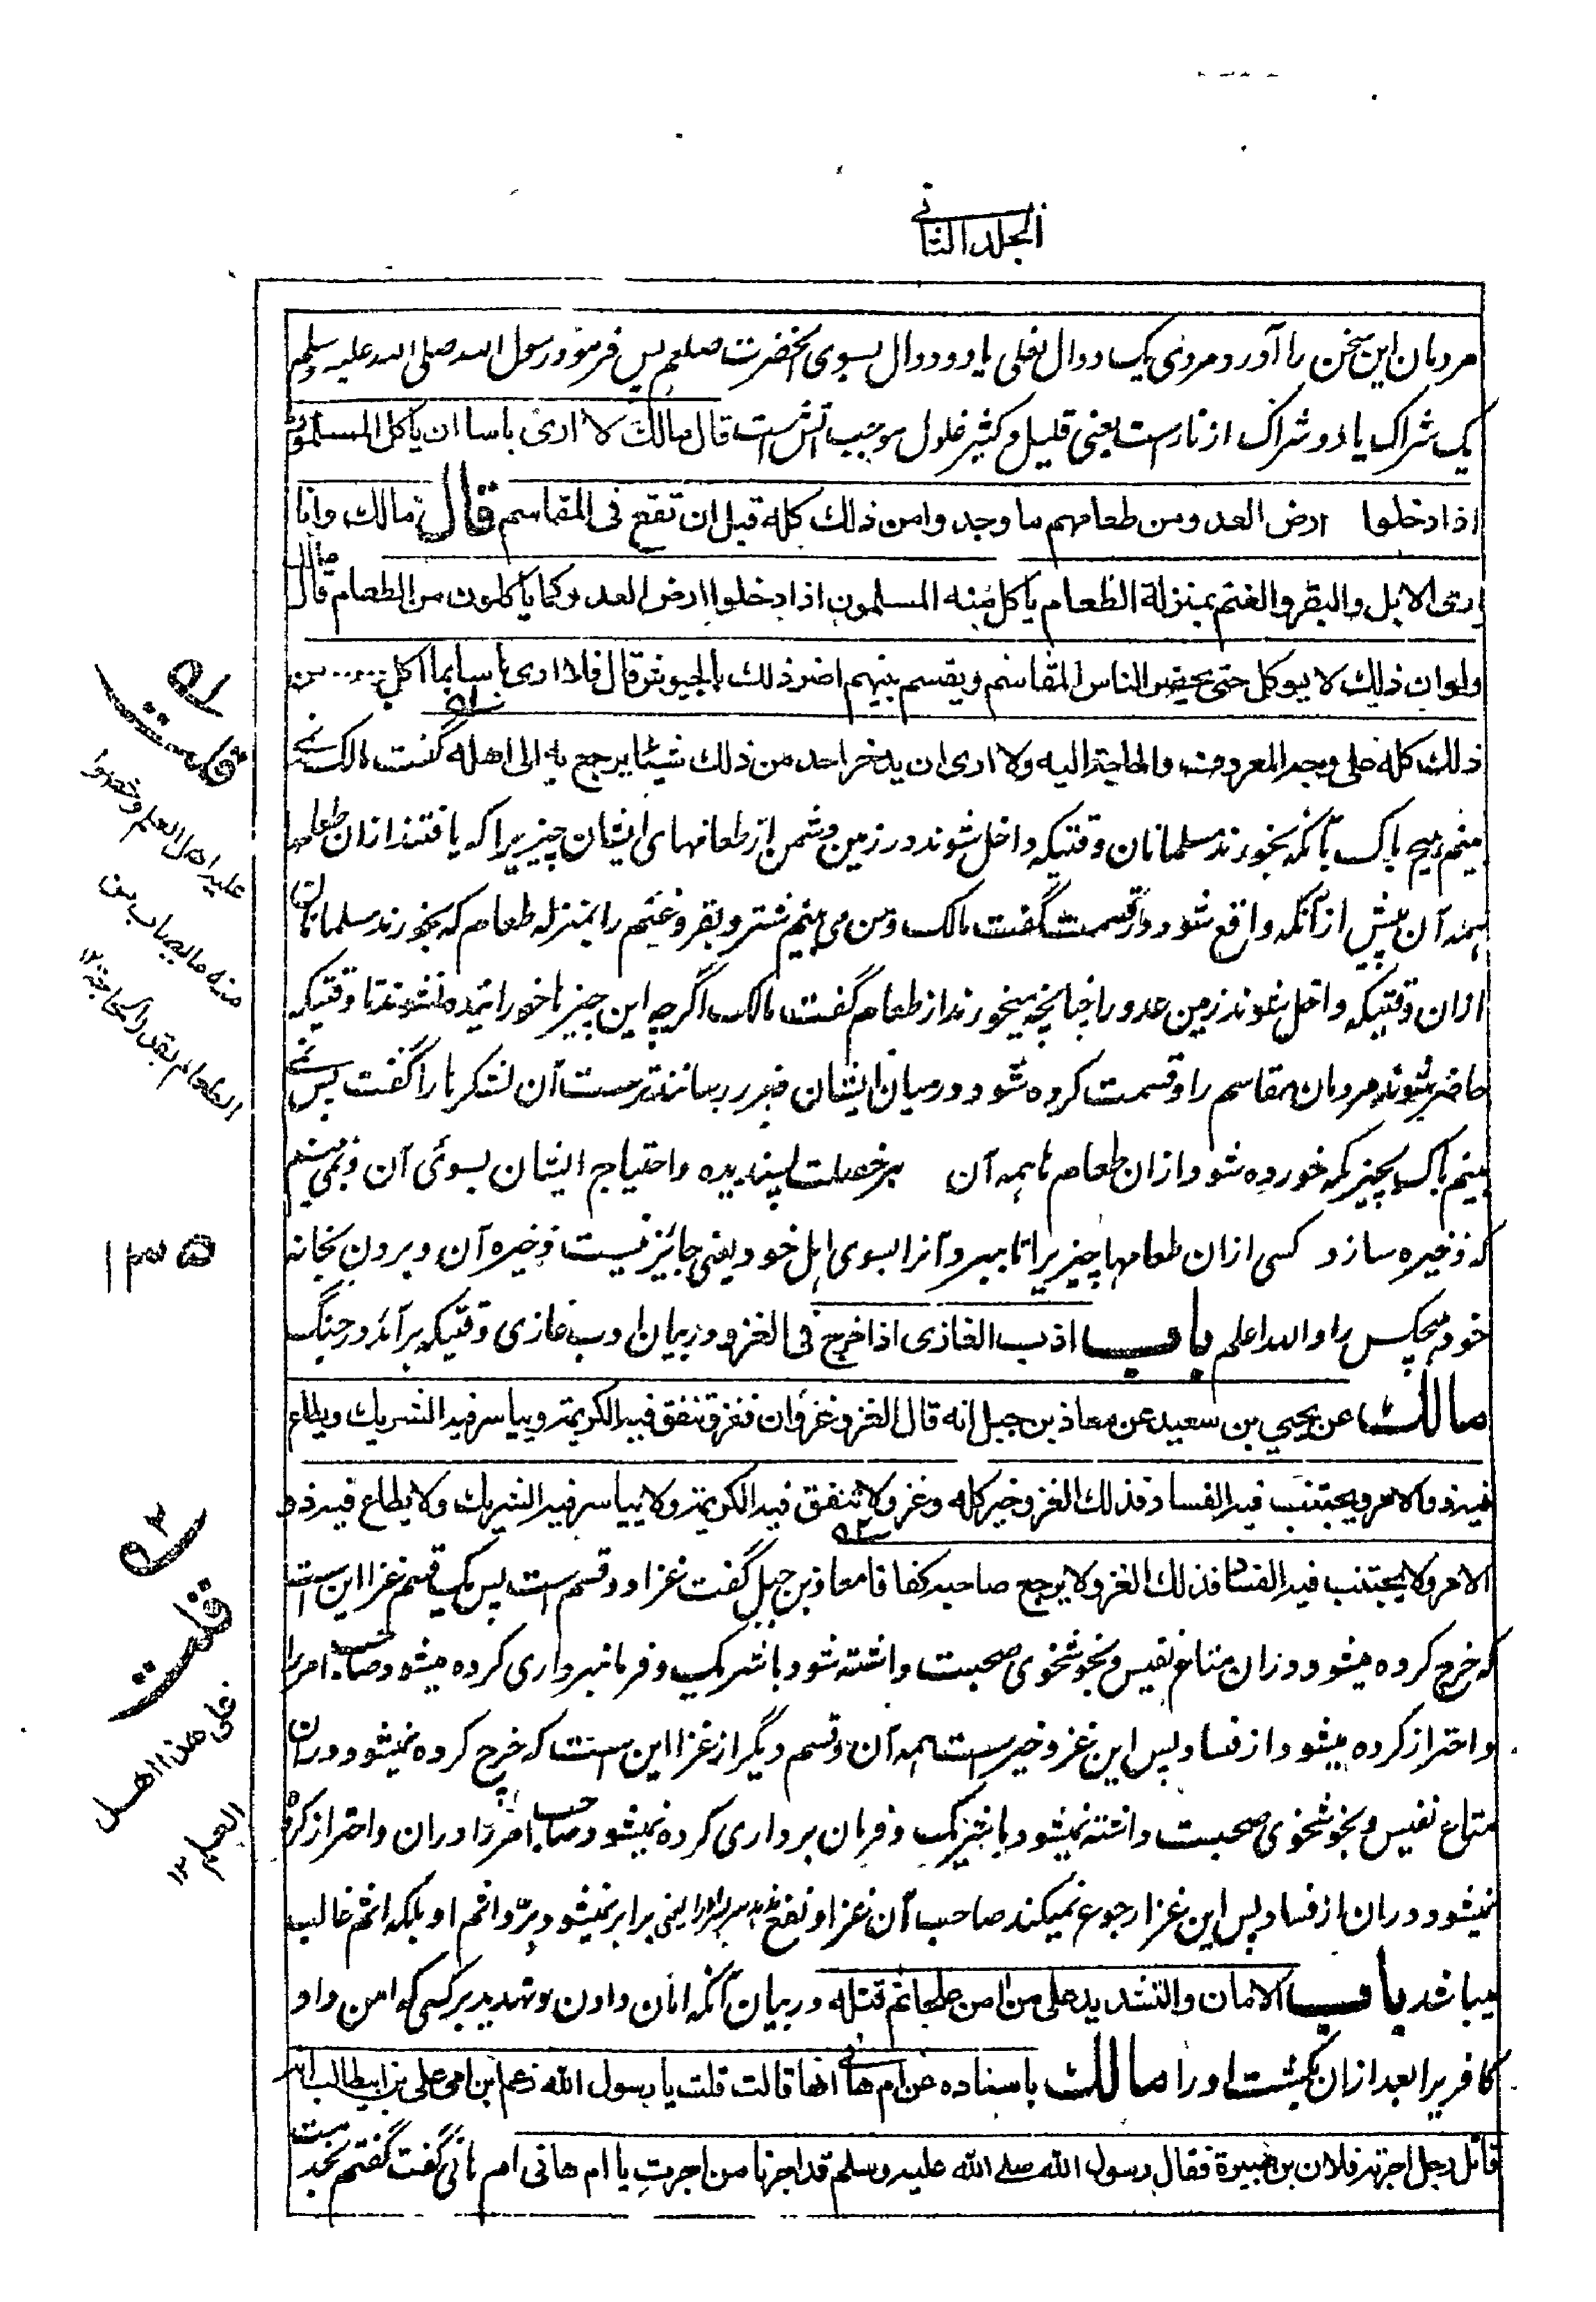 الجلد الثانی
مردمان این سخن را آورد مردی یک دوال نعلی یا دو دوال بسوی آنحضرت صلعم پس فرمود رسول الله صلی الله علیه وسلم
یک شراک یا دو شراک از نار ست یعنی قلیل و کثیر غلول موجب آتش است قال مالك لا ارى باسا ان ياكل المسلمون
اذا دخلوا ارض العدو من طعامهم ما وجدوا من ذلك كله قبل ان تقع فى المقاسم قال مالك وانا
ارى الابل والبقر والغنم بمنزلة الطعام ياكل منه المسلمون اذا دخلوا ارض العدو كما ياكلون من الطعام قال مالك
ولو ان ذلك لا يوكل حتى يحضر الناس المقاسم ويقسم بينهم اضر ذلك بالجيوش قال فلا ارى باسا بما اكل من
ذلك كله على وجه المعروف والحاجة اليه ولا ارى ان يدخر احد من ذلك شيئا يرجع به الى اهله گفت مالک نمی
بینم هیچ باک بآنکه بخورند مسلمانان وقتیکه داخل شوند در زمین دشمن از طعامهای ایشان چیزیرا که یافتند ازان طعامها
همه آن پیش از آنکه واقع شود در قسمت گفت مالک و من می بینم شتر و بقر و غنم را بمنزله طعام که بخورند مسلمانان
ازان وقتیکه داخل شوند زمین عدو را چنانچه میخورند از طعام گفت مالک اگرچه این چیزها خورانیده نشوند تا وقتیکه
حاضر شوند مردمان مقاسم را و قسمت کرده شود درمیان ایشان ضرر رسانند ترست آن لشکرها را گفت پس نمی
بینم باک بچیزیکه خورده شود ازان طعام ها همه آن بر خصلت پسندیده و احتیاج ایشان بسوی آن و نمی بینم
که ذخیره سازد کسی ازان طعامها چیزیرا تا ببرد آنرا بسوی اهل خود یعنی جائز نیست ذخیره آن و بردن بخانه
خود هیچکس را والله اعلم باب ادب الغازى اذا خرج فى الغزو در بیان ادب غازی وقتیکه برآید در جنگ
مالك عن يحيي بن سعيد عن معاذ بن جبل انه قال الغزو غزوان فغزو تنفق فيه الكريمة وياسر فيه الشريك ويطاع
فيه ذو الامر ويجتنب فيه الفساد فذلك الغزو خير كله وغزو لا تنفق فيه الكريمة ولا يياسر فيه الشريك ولا يطاع فيه ذو
الامر ولا يجتنب فيه الفساد فذلك الغزو لا يرجع صاحبه كفافا معاذ بن جبل گفت غزا دو قسم است پس یک قسم غزا این ست
که خرج کرده میشود دران متاع نفیس و بخوشخوی صحبت داشته شود با شریک و فرمانبرداری کرده میشود صاحب امر را
و احتراز کرده میشود از فساد پس این غزو خیر ست همه آن و قسم دیگر از غزا این ست که خرج کرده نمیشود دران
متاع نفیس و بخوشخوی صحبت داشته نمیشود با شریک و فرمان برداری کرده نمیشود صاحب امر را دران و احتراز کرده
نمیشود دران از فساد پس این غزا رجوع نمیکند صاحب آن غزا و نفع یعنی برابر نمیشود بِرّ و اثم او بلکه اثم غالب
میباشد باب الامان والتشديد على من امن طعاثم قتله در بیان آنکه امان دادن و تهدید بر کسی که امن داد
کافریرا بعد ازان بکشت او را مالك باسناده عن ام هانى انها قالت قلت يا رسول الله زعم ابن امى على بن ابيطالب انه
قاتل رجل اجرته فلان بن هبيرة فقال رسول الله صلى الله عليه وسلم قد اجرنا من اجرتِ يا ام هانى ام هانی گفت گفتم بخدمت
ف۱
قلت
عليه اهل العلم وخصوا
منه ما يصاب من
الطعام بقدر الحاجة ۱۲
۱۳۵
ف۲
قلت
على هذا اهل
العلم ۱۲